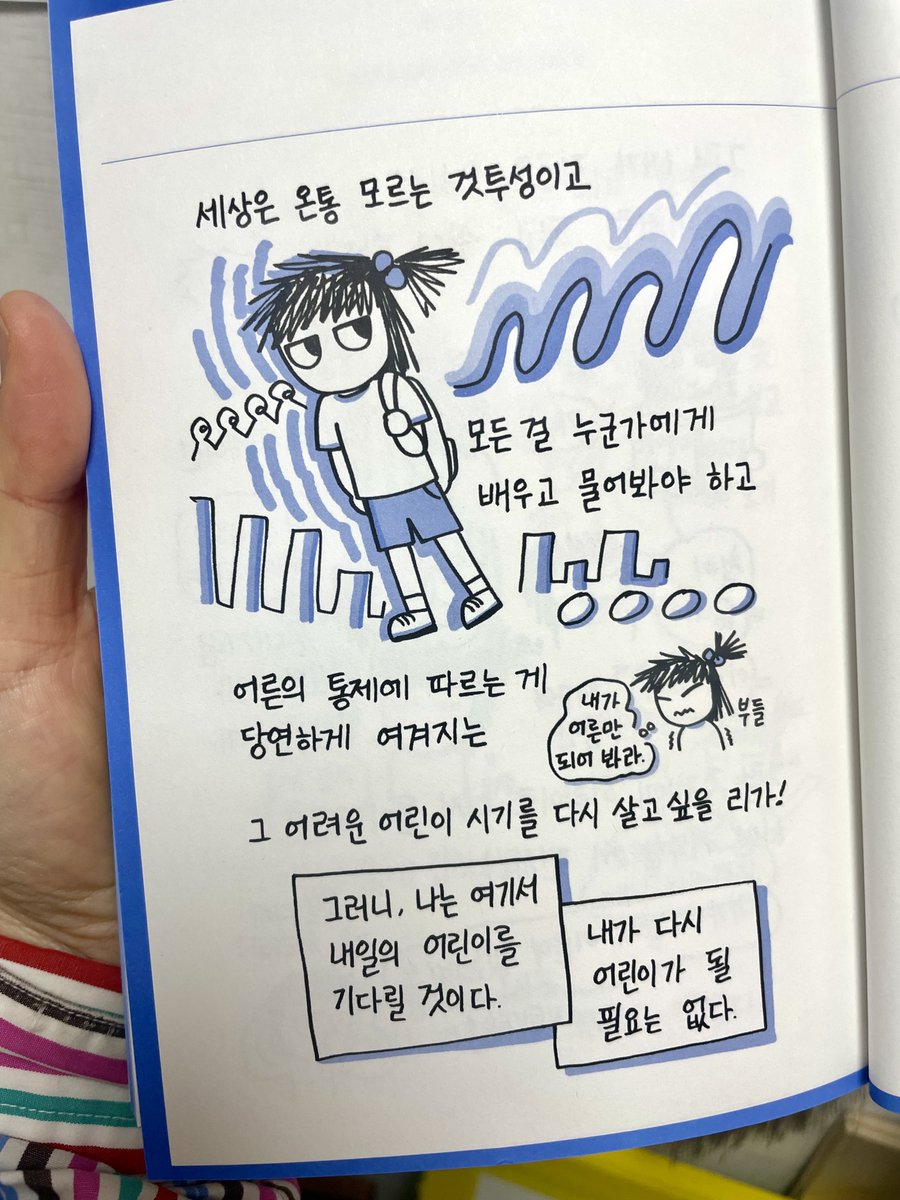 세상은 온통 모르는 것투성이고
모든 걸 누군가에게
배우고 물어봐야 하고
어른의 통제에 따르는 게
당연하게 여겨지는
내가
어른만
되어 봐라.
부들
그 어려운 어린이 시기를 다시 살고 싶을 리가!
그러니, 나는 여기서
내일의 어린이를
기다릴 것이다.
내가 다시
어린이가 될
필요는 없다.